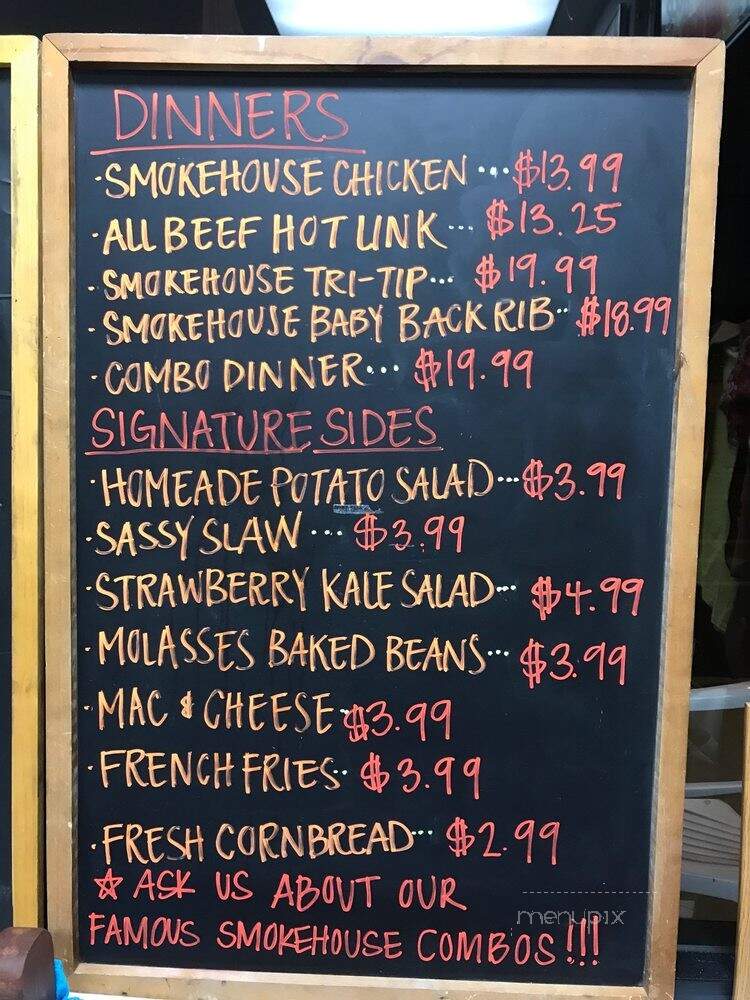 DINNERS
·SMOKEHOUSE CHICKEN ... $13.99
·ALL BEEF HOT LINK ... $13.25
·SMOKEHOUSE TRI-TIP... $19.99
·SMOKEHOUSE BABY BACK RIB.. $18.99
·COMBO DINNER... $19.99
SIGNATURE SIDES
·HOMEADE POTATO SALAD...$3.99
·SASSY SLAW .... $3.99
·STRAWBERRY KALE SALAD... $4.99
·MOLASSES BAKED BEANS... $3.99
·MAC & CHEESE.$3.99
·FRENCH FRIES.. $3.99
·FRESH CORNBREAD... $2.99
☆ ASK US ABOUT OUR
FAMOUS SMOKEHOUSE COMBOS!!!
menupix